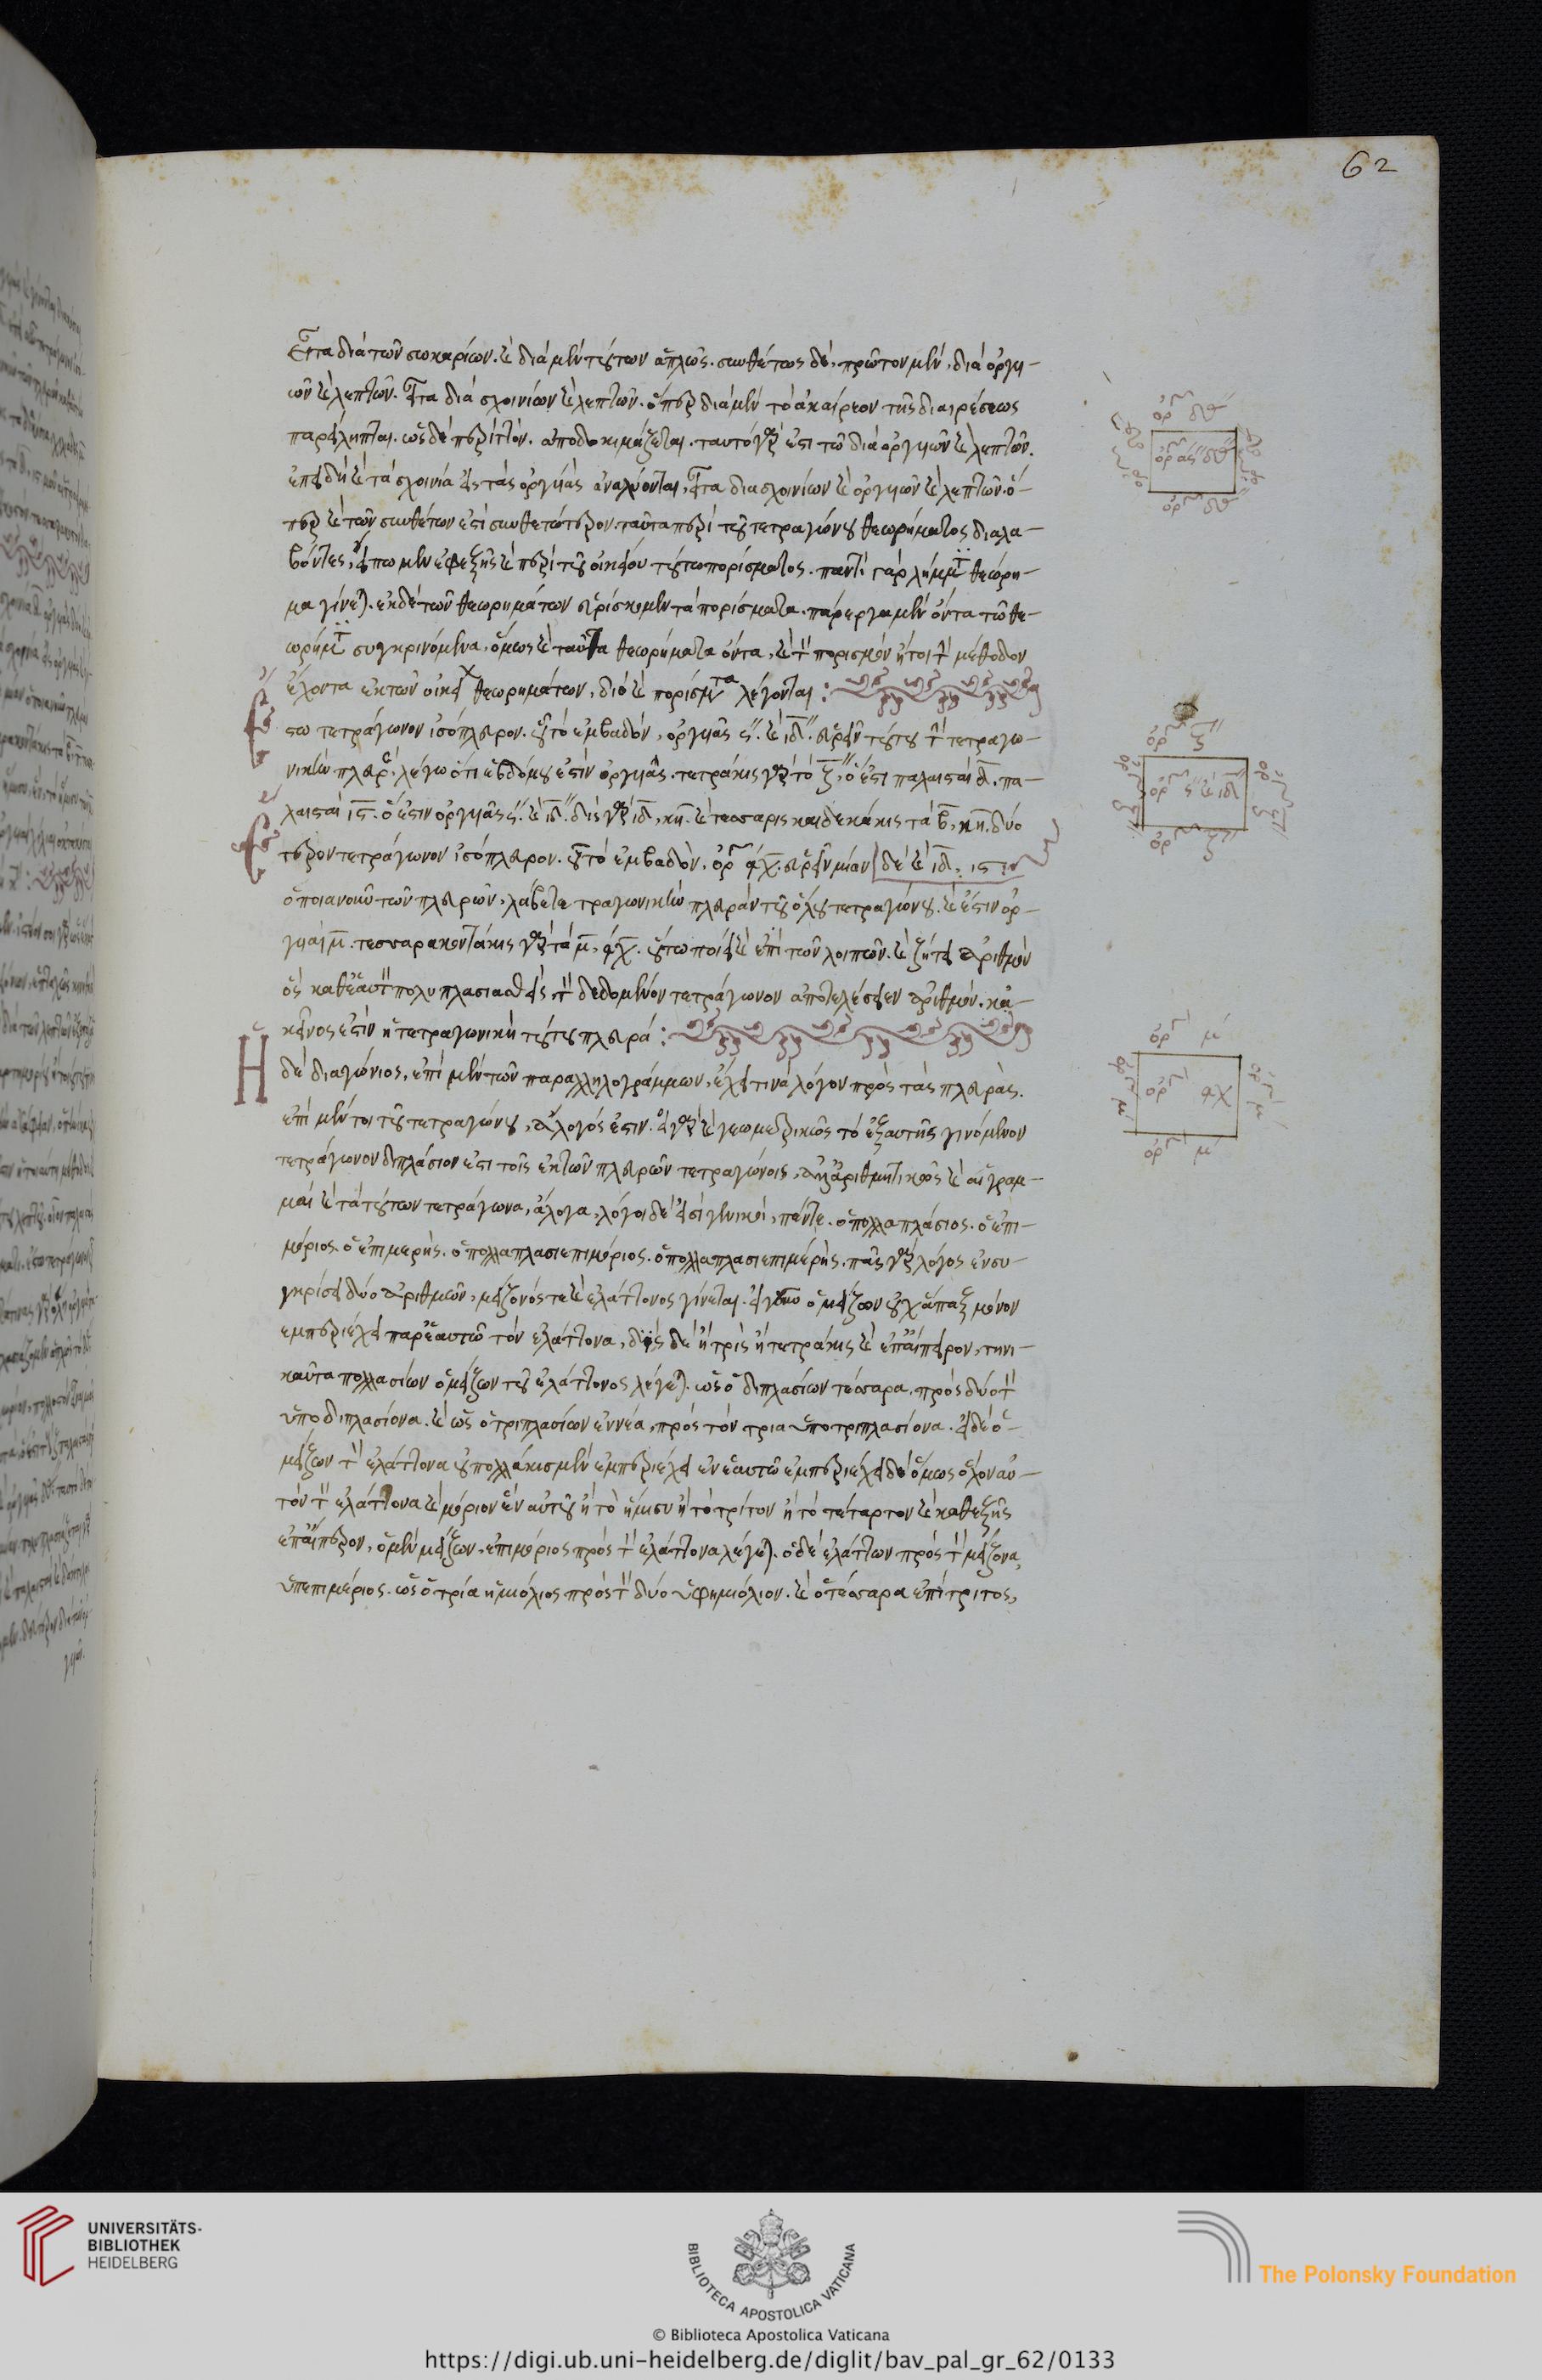 62
εἶτα διὰ τῶν σωκαρίων. καὶ διὰ μὲν τούτων ἁπλῶς. συνθέτως δὲ, πρῶτον μὲν, διὰ ὀργυι-
ῶν καὶ λεπτῶν. εἶτα διὰ σχοινίων καὶ λεπτῶν. ὅπερ διὰ μὲν τὸ ἀκαίρεον τῆς διαιρέσεως
παρείληπται. ὡς δὲ περιττὸν. ἀποδοκιμάζεται. ταυτὸ γάρ ἐστι τῶ διὰ ὀργυιῶν καὶ λεπτῶν.
ἐπειδὴ καὶ τὰ σχοινία εἰς τὰς ὀργυιὰς ἀναλύονται, εἶτα διὰ σχοινίων καὶ ὀργυιῶν καὶ λεπτῶν. ὅ-
περ καὶ τῶν συνθέτων ἐστὶ συνθετώτερον. ταῦτα περὶ τοῦ τετραγώνου θεωρήματος διαλα-
βόντες, εἴπωμεν ἐφεξῆς καὶ περὶ τοῦ οἰκείου τούτω πορίσματος. παντὶ γὰρ λήμματι θεώρη-
μα γίνεται. ἐκ δὲ τῶν θεωρημάτων εὑρίσκομεν τὰ πορίσματα. πάρεργα μὲν ὄντα τῶ θε-
ωρήματι συγκρινόμενα, ὅμως καὶ ταῦτα θεωρήματα ὄντα, καὶ τὸν πορισμὸν ἤτοι τὴν μέθοδον
ἔχοντα ἐκ τῶν οἰκείων θεωρημάτων, διὸ καὶ πορίσματα λέγονται:
ἔστω τετράγωνον ἰσόπλευρον. οὗ τὸ ἐμβαδὸν, ὀργυιᾶς ς″. καὶ ιδ″. εὑρεῖν τούτου τὴν τετραγω-
νικὴν πλευράν. λέγω ὅτι ἑβδόμου ἐστὶν ὀργυιᾶς. τετράκις γὰρ τὸ ζ″, ὅ ἐστι παλαισταὶ δ. πα-
λαισταὶ ις. ὅ ἐστιν ὀργυιᾶς ς″. καὶ ιδ″. δὶς γὰρ ιδ, κη. καὶ τεσσαρισκαιδεκάκις τὰ β, κη. δύο
δὲ καὶ ιδ, ις:
ἕτερον τετράγωνον ἰσόπλευρον. οὗ τὸ ἐμβαδὸν. ὀργ αχ. εὑρεῖν μίαν
ὁποιανοῦν τῶν πλευρῶν, λάβε τετραγωνικὴν πλευρὰν τοῦ ὅλου τετραγώνου. καὶ ἔστιν ὀρ-
γυιαὶ μ. τεσσαρακοντάκις γὰρ τὰ μ, αχ. οὕτω ποίει καὶ ἐπὶ τῶν λοιπῶν. καὶ ζήτει ἀριθμὸν
ὃς καθ᾽ ἑαυτὸν πολυπλασιασθεὶς, τὸν δεδομένον τετράγωνον ἀποτελέσειεν ἀριθμόν. κἀ-
κεῖνος ἐστὶν ἡ τετραγωνικὴ τούτου πλευρά:
Ἡ δὲ διαγώνιος, ἐπὶ μὲν τῶν παραλληλογράμμων, ἔχει τινὰ λόγον πρὸς τὰς πλευρὰς.
ἐπὶ μέν τοι τοῦ τετραγώνου, ἄλογός ἐστιν. εἰ γὰρ καὶ γεωμετρικῶς τὸ ἐξ αὐτῆς γινόμενον
τετράγωνον διπλάσιον ἐστι τοῖς ἐκ τῶν πλευρῶν τετραγώνοις, ἀλλ᾽ ἀριθμητικῶς καὶ αἱ γραμ-
μαὶ καὶ τὰ τούτων τετράγωνα, ἄλογα, λόγοι δὲ εἰσὶ γενικοὶ, πέντε. ὁ πολλαπλάσιος. ὁ ἐπι-
μόριος. ὁ ἐπιμερὴς. ὁ πολλαπλασιεπιμόριος. ὁ πολλαπλασιεπιμερὴς. πᾶς γὰρ λόγος ἐν συ-
γκρίσει δύο ἀριθμῶν, μείζονός τε καὶ ἐλάττονος γίνεται. εἰ γοῦν ὁ μείζων οὐχ ἅπαξ μόνον
ἐμπεριέχει παρ᾽ ἑαυτῶ τὸν ἐλάττονα, δὶς δὲ ἢ τρὶς ἢ τετράκις καὶ ἐπ᾽ ἄπειρον, τηνι-
καῦτα πολλασίων ὁ μείζων τοῦ ἐλάττονος λέγεται. ὡς ὁ διπλασίων τέσσαρα. πρὸς δύο τὸν
ὑποδιπλασίονα. καὶ ὡς ὁ τριπλασίων ἐννέα, πρὸς τὸν τρια ὑποτριπλασίονα. εἰ δὲ ὁ
μείζων τὸν ἐλάττονα οὐ πολλάκις μὲν ἐμπεριέχει ἐν ἑαυτῶ ἐμπεριέχει δὲ ὅμως ὅλον αὐ-
τὸν τὸν ἐλάττονα καὶ μόριον ἓν αὐτοῦ ἢ τὸ ἥμισυ ἢ τὸ τρίτον ἢ τὸ τέταρτον καὶ καθεξῆς
ἐπ᾽ ἄπειρον, ὁ μὲν μείζων, ἐπιμόριος πρὸς τὸν ἐλάττονα λέγεται. ὁ δὲ ἐλάττων πρὸς τὸν μείζονα,
ὑπεπιμόριος. ὡς ὁ τρία ἡμιόλιος πρὸς τὸν δύο ὑφημιόλιον. καὶ ὁ τέσσαρα ἐπίτριτος,
UNIVERSITÄTS-
BIBLIOTHEK
HEIDELBERG
BIBLIOTECA APOSTOLICA VATICANA
The Polonsky Foundation
© Biblioteca Apostolica Vaticana
https://digi.ub.uni-heidelberg.de/diglit/bav_pal_gr_62/0133